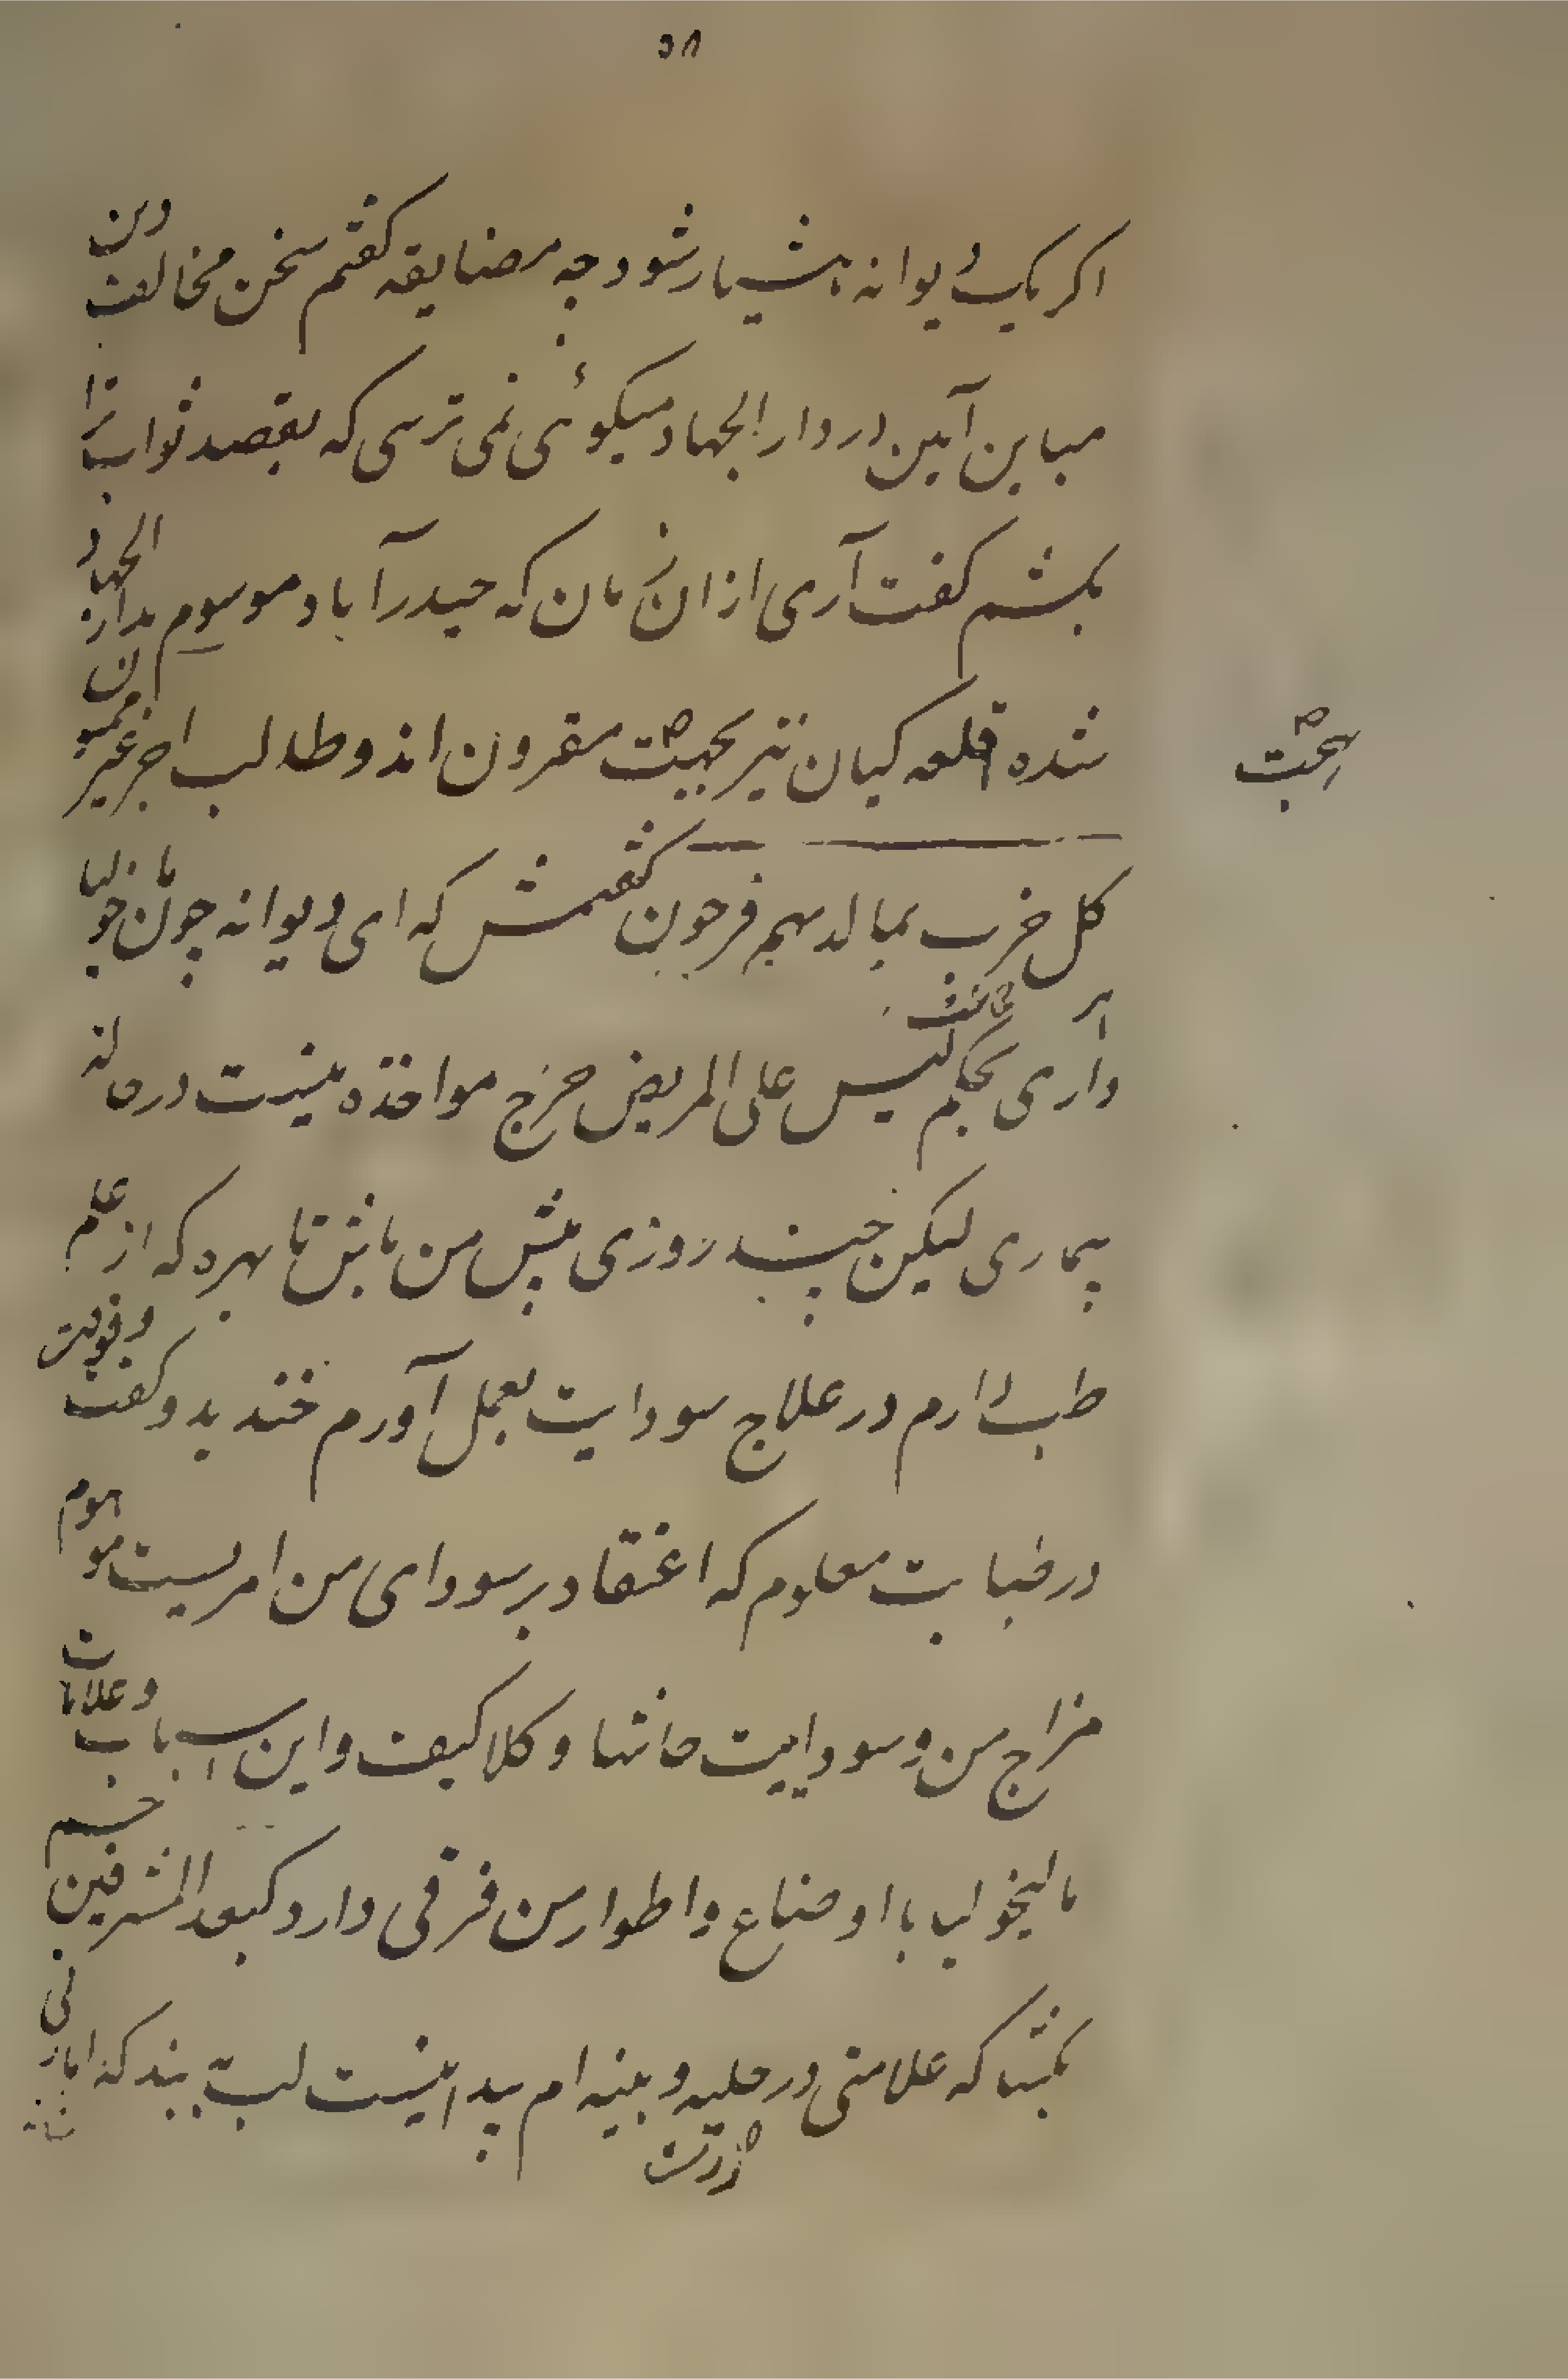 ۵۸
اکر یک دیوانه هشیار شود چه مضایقه کفتم سخن مخالف دین
مباین آیین در دار الجهاد میکوئی نمی ترسی که بقصد ثواب ترا
بکشم کفت آری از ان زمان که حیدرآباد موسوم بدار الجهاد
شده قلعه کیان نیز بحبیت مقرون اند و طالب اجر غیر ممنون
بحبت
کل حزب بما لدیهم فرحون کفتمش که ای دیوانه چون مالیخولیا
داری بحکم لیس علی المریض حرج مواخذه نیست در حالة
بیماری لیکن چند روزی پیش من باش تا بهره که از علم
طب دارم در علاج سودایت بعمل آورم خندید و کفت وقوفت
در طبابت معلوم که اعتقاد بر سودای من امریست موهوم
مزاج من و سوداییت حاشا و کلا کیف و این اسباب و علامات
مالیخولیا با اوضاع و اطوار من فرقی دارد کبعد المشرقین چشم
بکشا که علامتی در حلیه و بنیه ام پیدا نیست لب ببند که